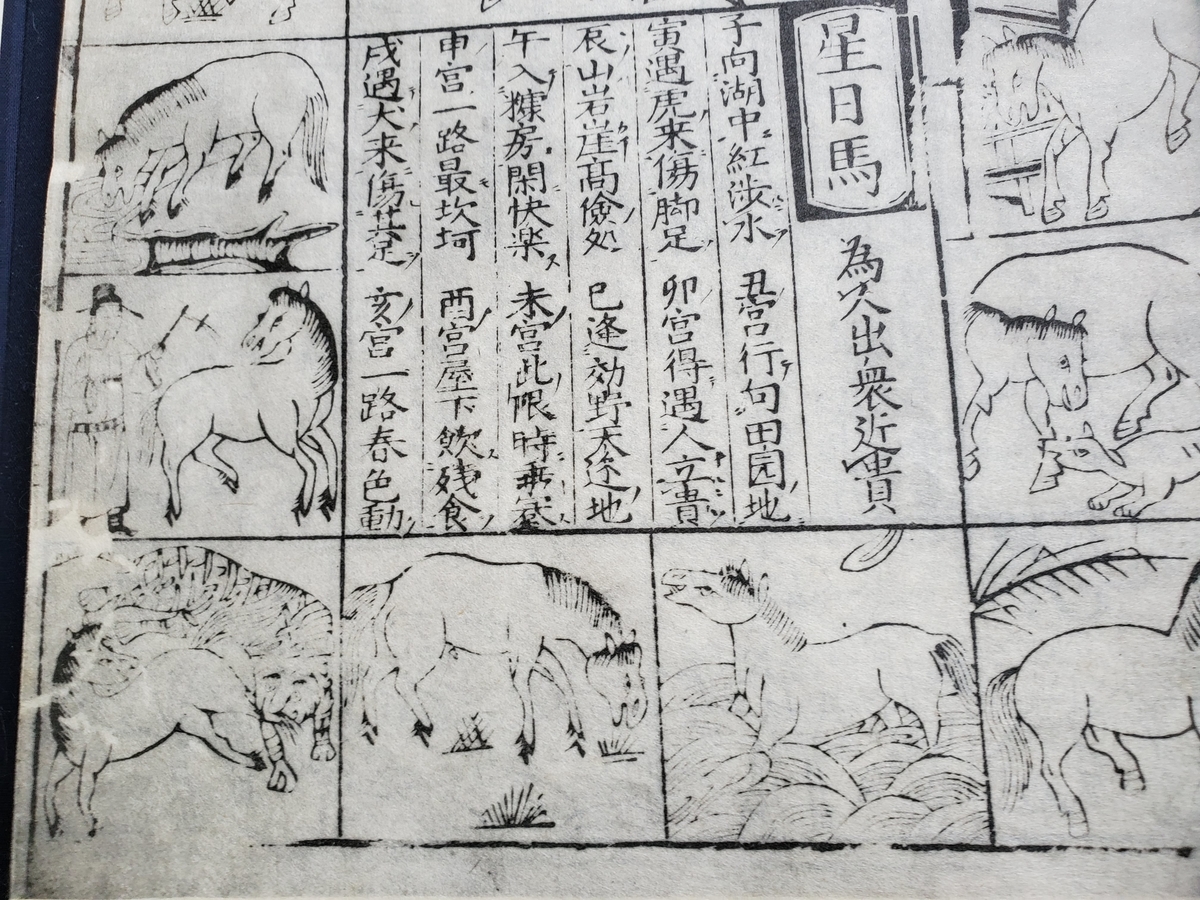 星日馬
為人出衆近貴
子向湖中紅涉水 丑宮行句田园地
寅遇虎来傷脚足 卯宮得遇人立貴
辰山岩崖高儉処 巳逢効野天迯地
午入糠房閑快楽 未宮此限時乖
申宮一路最坎坷 酉宮屋下飲残食
戌遇犬来傷其足 亥宮一路春色動